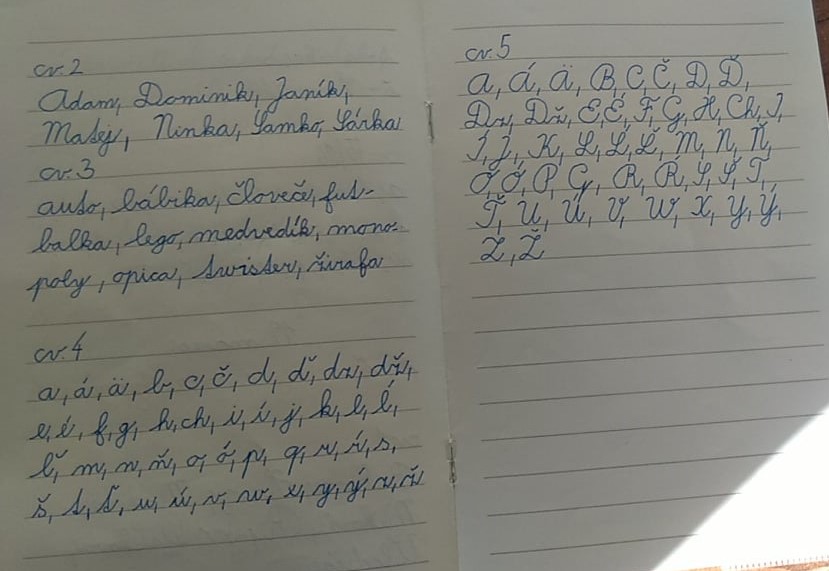 cv. 2
Adam, Dominik, Janík,
Matej, Ninka, Samko, Sárka
cv. 3
auto, bábika, človeče, fut-
balka, lego, medvedík, mono-
poly, opica, twister, žirafa
cv. 4
a, á, ä, b, c, č, d, ď, dz, dž,
e, é, f, g, h, ch, i, í, j, k, l, ĺ,
ľ, m, n, ň, o, ó, p, q, r, ŕ, s,
š, t, ť, u, ú, v, w, x, y, ý, z, ž
cv. 5
A, Á, Ä, B, C, Č, D, Ď,
Dz, Dž, E, É, F, G, H, Ch, I,
Í, J, K, L, Ĺ, Ľ, M, N, Ň,
O, Ó, P, Q, R, Ŕ, S, Š, T,
Ť, U, Ú, V, W, X, Y, Ý,
Z, Ž